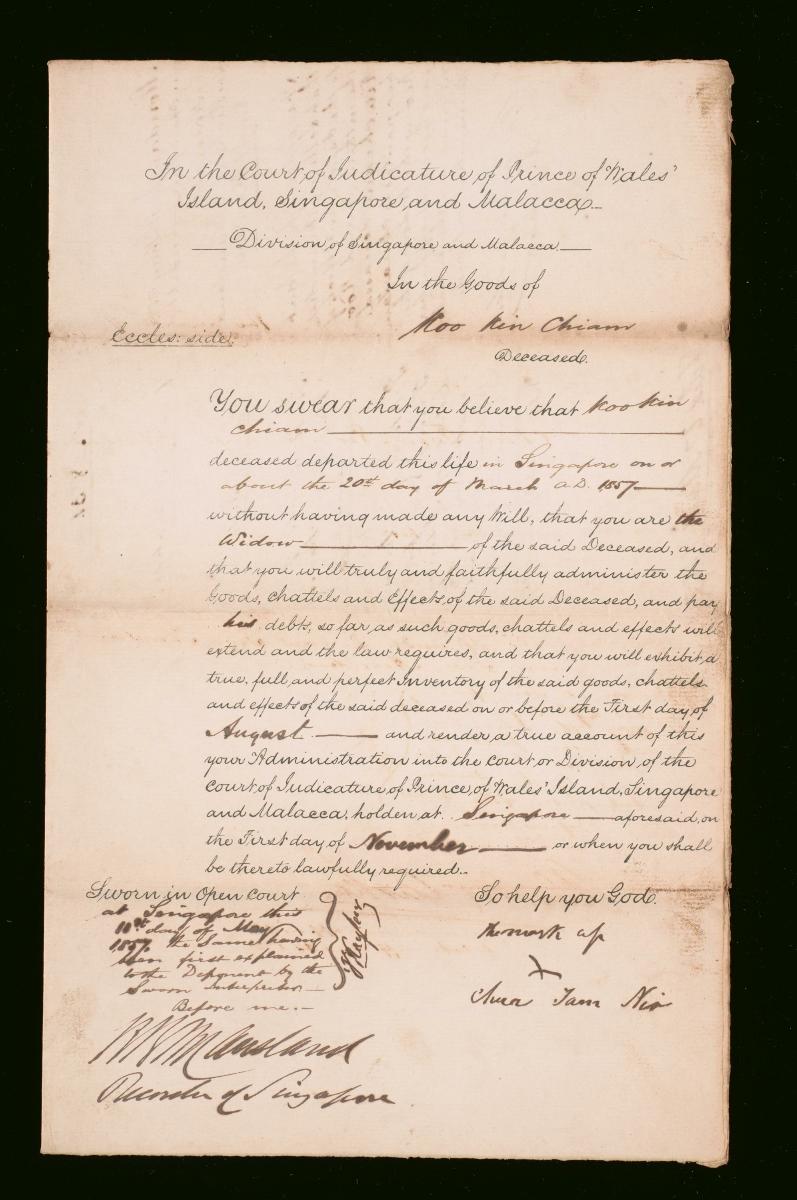 In the Court of Judicature of Prince of Wales'
Island, Singapore and Malacca
Division of Singapore and Malacca
In the Goods of
Eccles: side. Koo Kin Chiam
Deceased.
You swear that you believe that Koo Kin
Chiam
deceased departed this life in Singapore on or
about the 20th day of March A.D. 1857
without having made any Will, that you are the
Widow of the said Deceased, and
that you will truly and faithfully administer the
Goods, Chattels and Effects, of the said Deceased, and pay
his debts, so far, as such goods, chattels and effects will
extend and the law requires, and that you will exhibit, a
true, full, and perfect Inventory of the said goods, chattels
and effects of the said deceased on or before the First day of
August and render, a true account of this
your Administration into the Court or Division, of the
Court of Judicature, of Prince, of Wales' Island, Singapore
and Malacca, holden, at Singapore aforesaid, on
the First day of November or when you shall
be thereto lawfully required.
Sworn in Open Court
at Singapore this
11th day of May
1857 the same having
been first explained
to the Deponent by the
Sworn Interpreter
Before me.
Recorder of Singapore
So help you God.
The mark of
X
Tam Nio